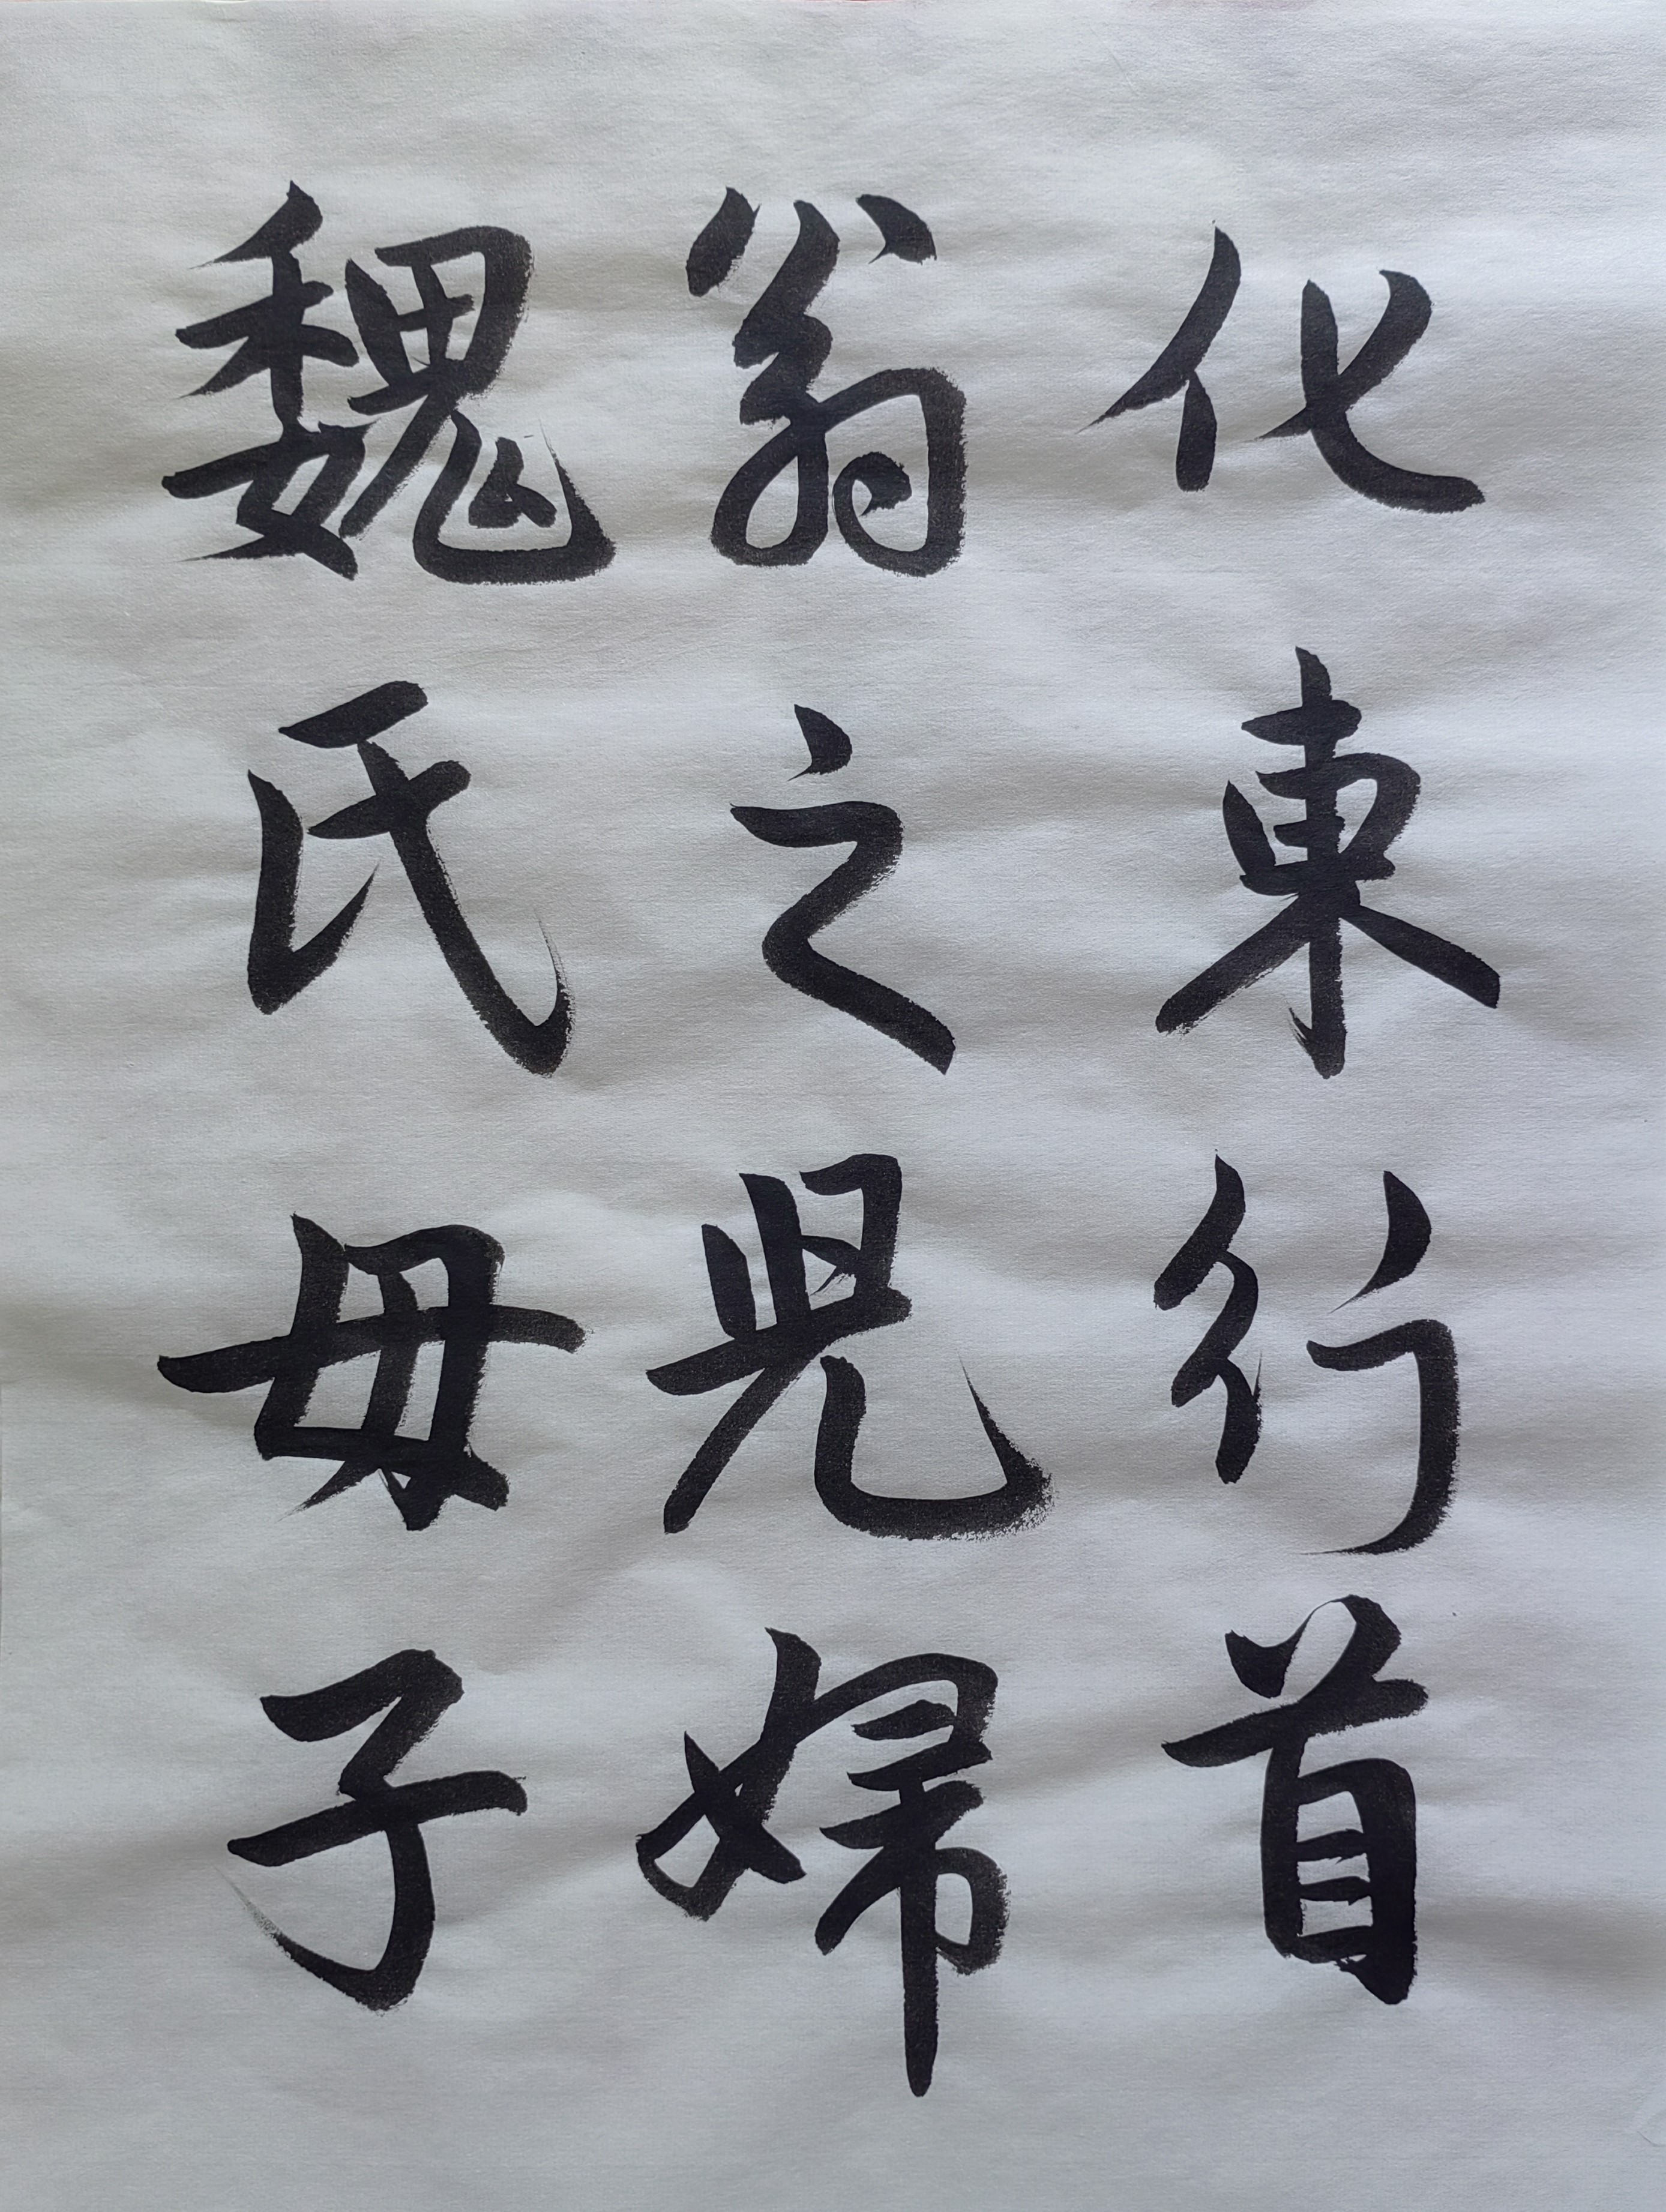 化東行首
翁之兒婦
魏氏毋子